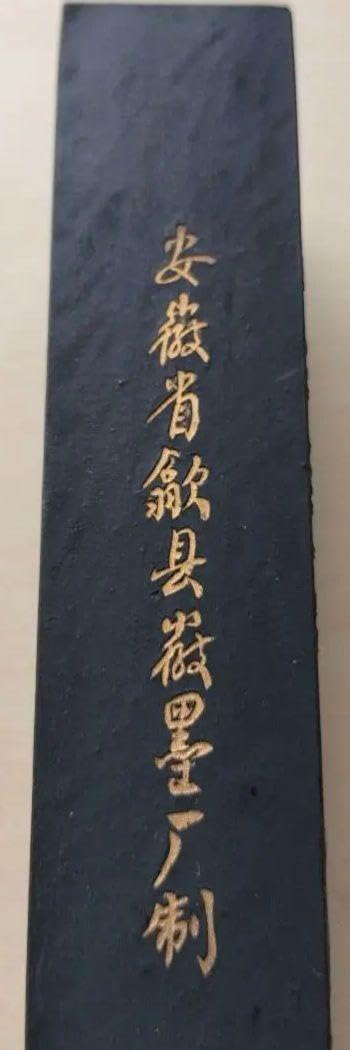 安徽省歙县徽墨厂制